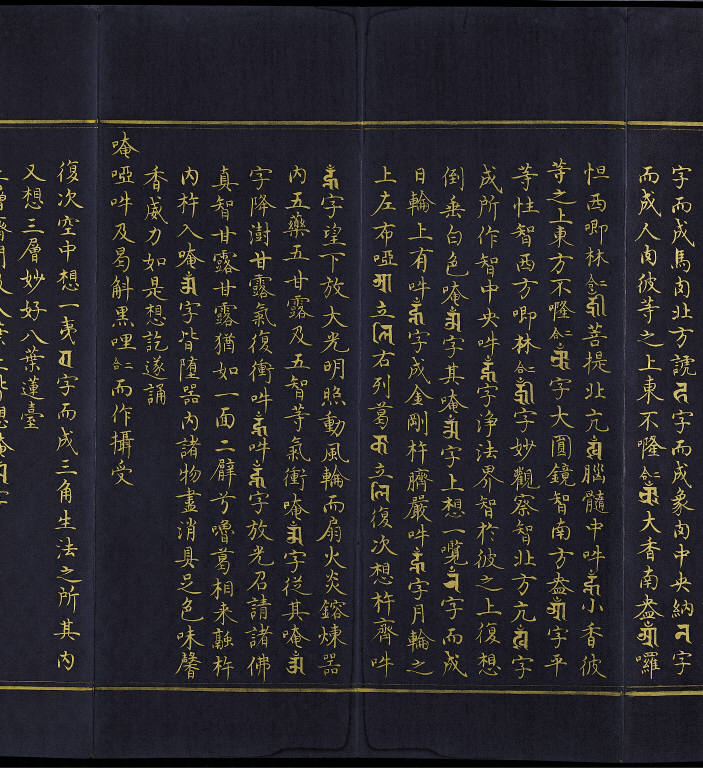 字而成馬肉北方謊字而成象肉中央納字
而成人肉彼等之上東不㘕合仁大香南盎囉
怛西唧林合仁菩提北亢腦髓中吽小香彼
等之上東方不㘕合仁字大圓鏡智南方盎字平
等性智西方唧林合仁字妙觀察智北方亢字
成所作智中央吽字淨法界智於彼之上復想
倒垂白色唵字其唵字上想一㘕字而成
日輪上有吽字成金剛杵臍嚴吽字月輪之
上左布啞立右列葛立復次想杵齊吽
字望下放大光明照動風輪而扇火炎鎔煉器
內五藥五甘露及五智等氣衝唵字從其唵
字降澍甘露氣復衝吽吽字放光召請諸佛
真智甘露甘露猶如一面二臂兮嚕葛相來融杵
內杵入唵字皆墮器內諸物盡消具足色味馨
香威力如是想訖遂誦
唵啞吽及曷斛黑哩合仁而作攝受
復次空中想一夷字而成三角生法之所其內
又想三層妙好八葉蓮臺